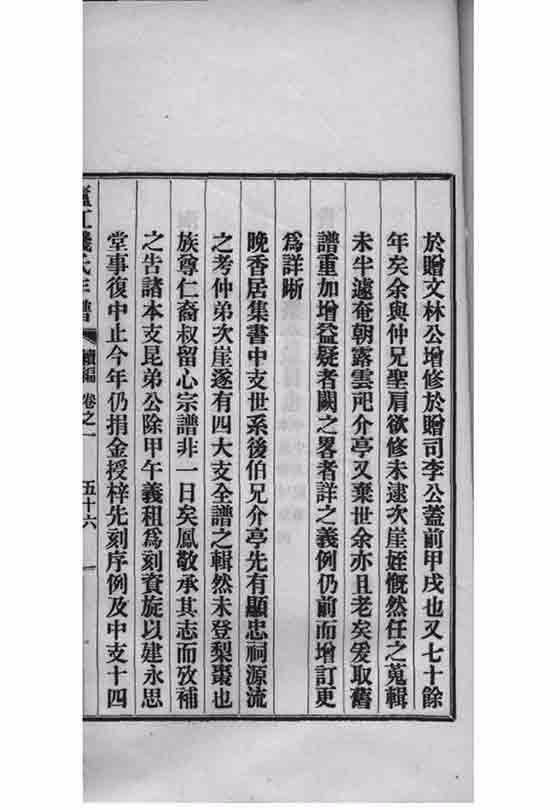 於贈文林公增修於贈司李公蓋前甲戌也又七十餘
年矣余與仲兄聖肩欲修未逮次崖姪慨然任之蒐輯
未半遽奄朝露雲祀介亭又棄世余亦且老矣爰取舊
譜重加增益疑者闕之畧者詳之義例仍前而增訂更
爲詳晰
晚香居集書中支世系後伯兄介亭先有顯忠祠源流
之考仲弟次崖遂有四大支全譜之輯然未登梨棗也
族尊仁裔叔留心宗譜非一日矣鳳敬承其志而攷補
之告諸本支昆弟公除甲午義租爲刻資旋以建永思
堂事復中止今年仍捐金授梓先刻序例及中支十四
廬江錢氏年譜 續編 卷之一 五十六